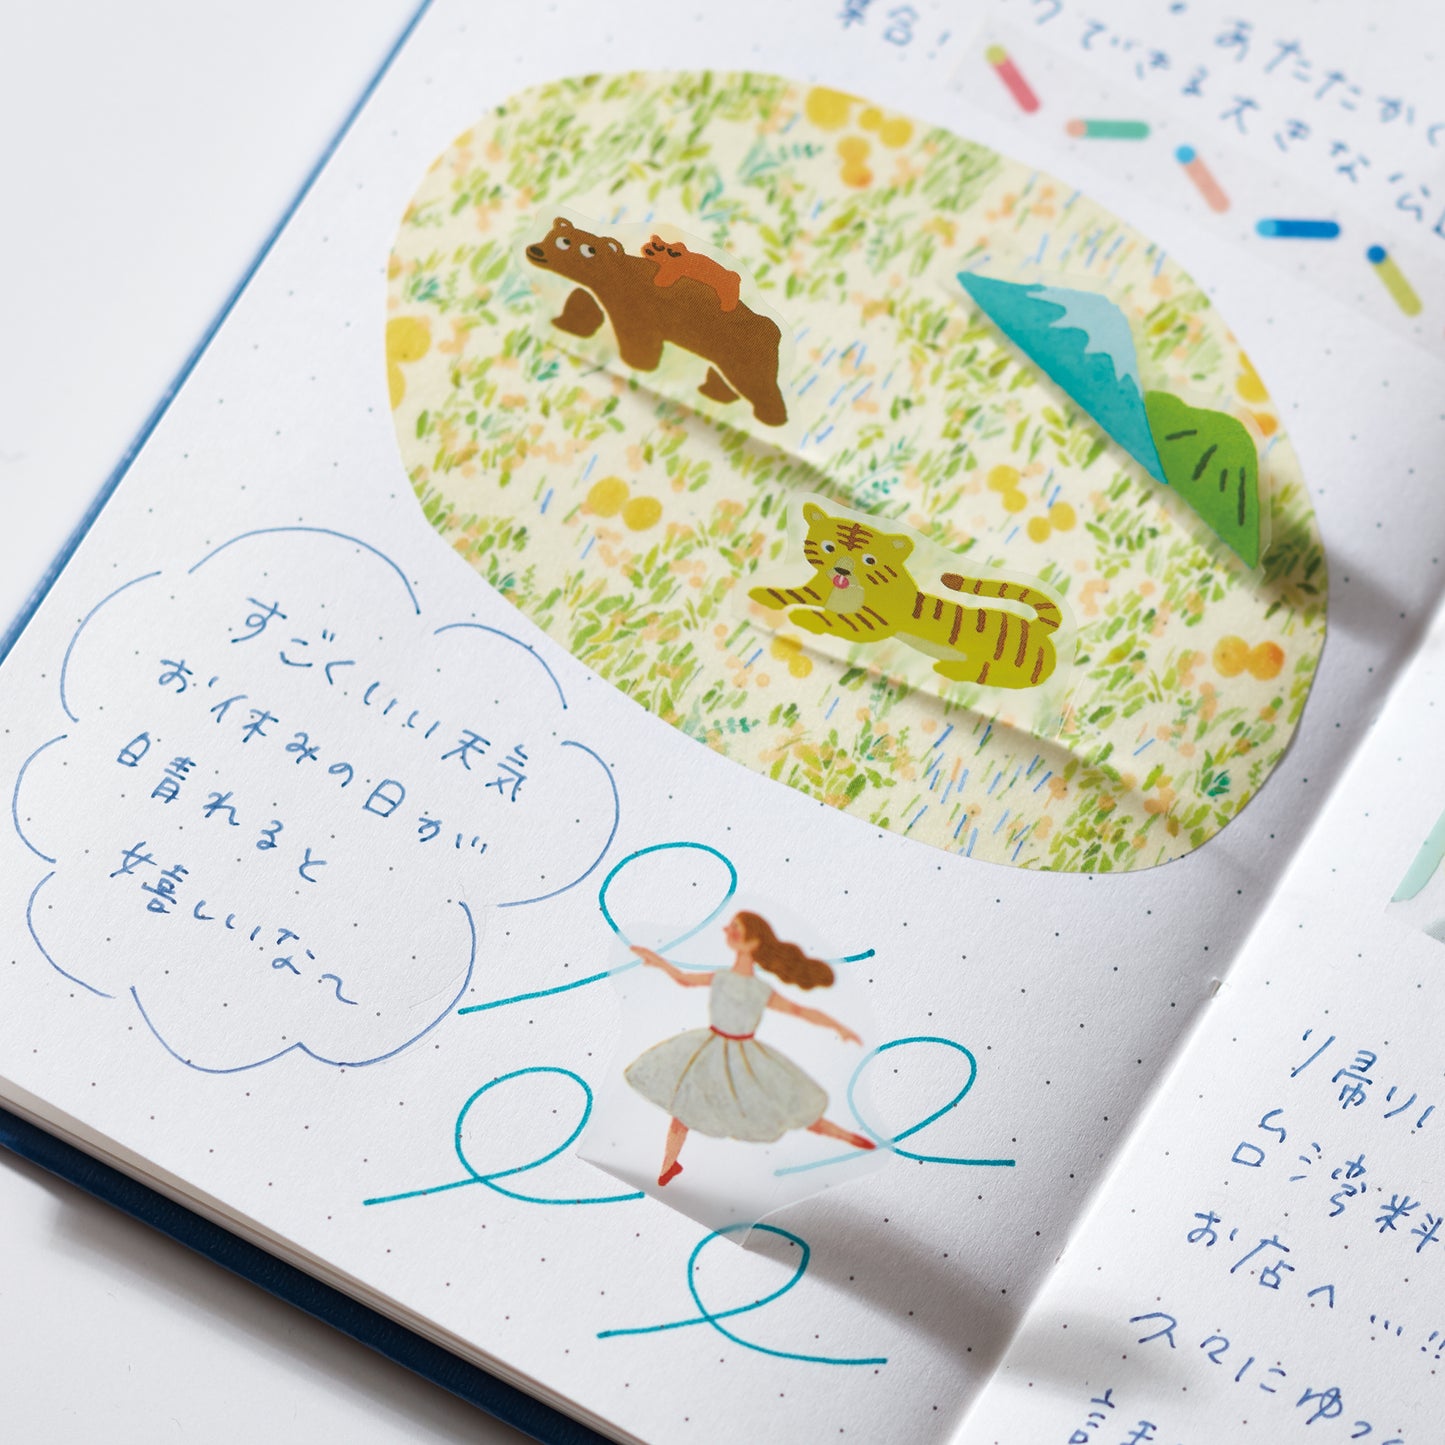 あたたかく
クできる大きな公
集合!
すごくいい天気
お休みの日が
晴れると
嬉しいな〜
帰りに
台湾料
お店へ…!!
久々にゆっく